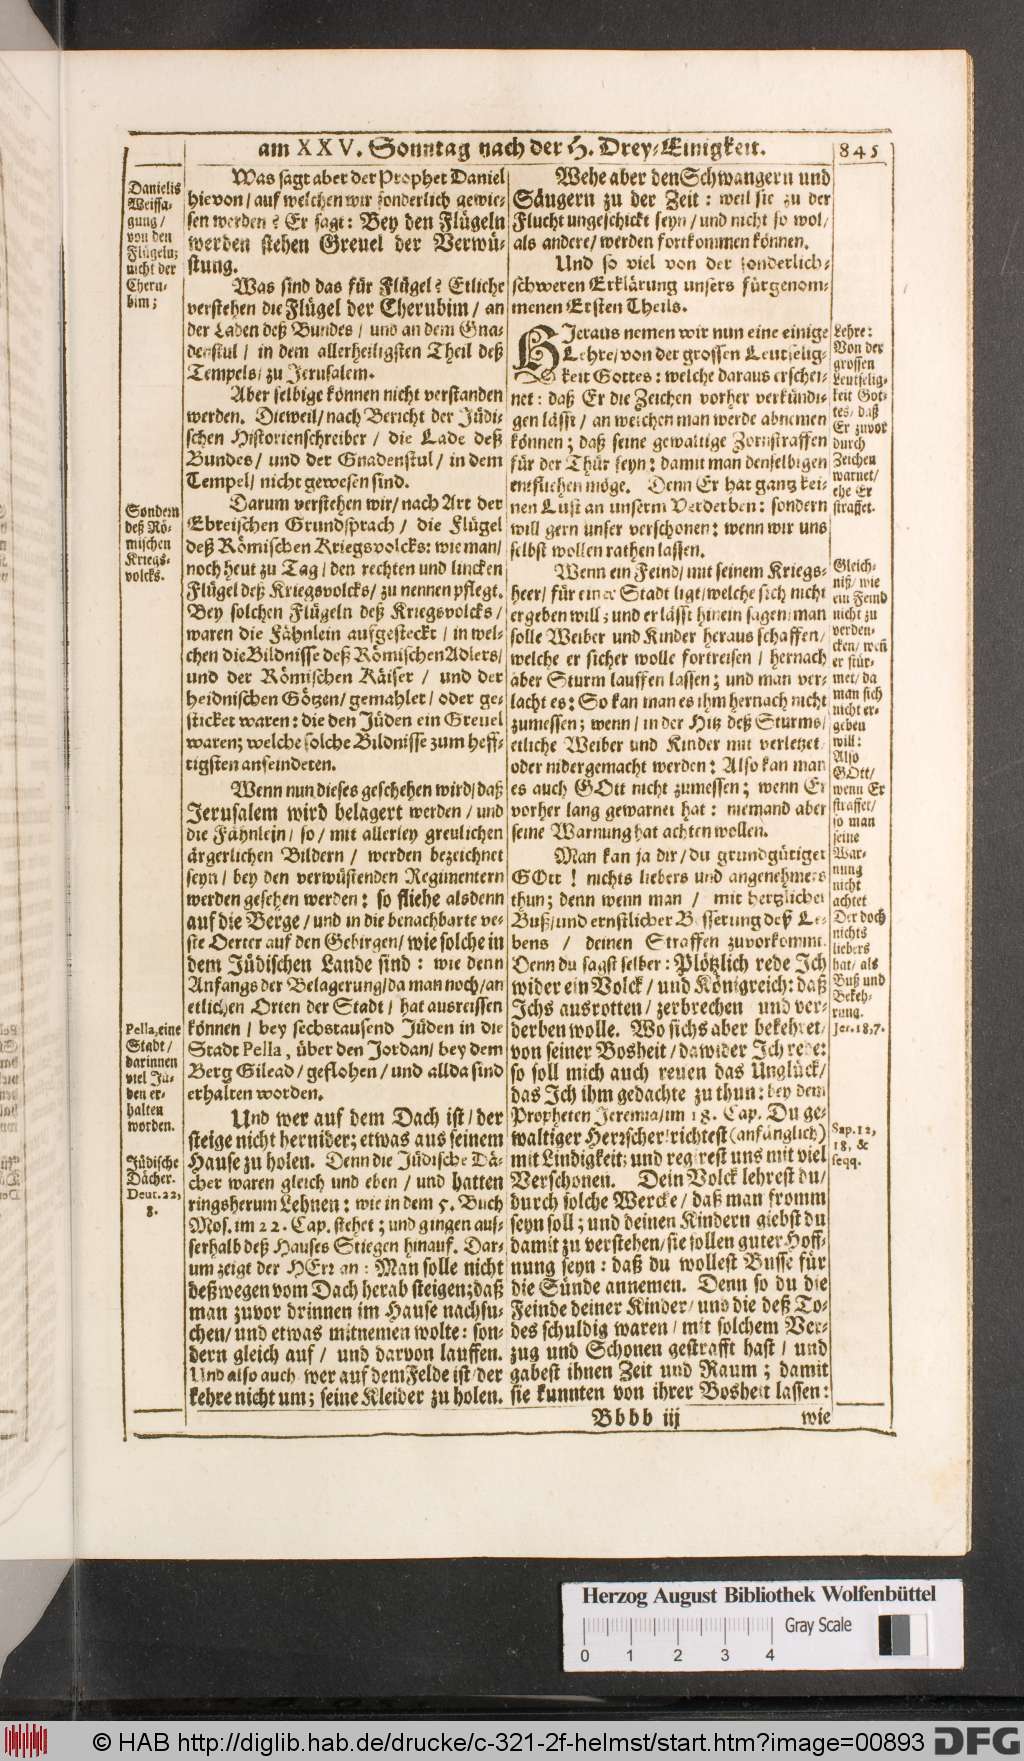 am XXV. Sonntag nach der H. Drey-Einigkeit.
845
Danielis
Weissa-
gung /
von den
Flügeln;
nicht der
Cheru-
bim;
Sondern
deß Rö-
mischen
Kriegs-
volcks.
Pella, eine
Stadt /
darinnen
viel Jü-
den er-
halten
worden.
Jüdische
Dächer.
Deut. 22,
8.
Was sagt aber der Prophet Daniel
hievon / auf welchen wir sonderlich gewie-
sen werden? Er sagt: Bey den Flügeln
werden stehen Greuel der Verwü-
stung.
Was sind das für Flügel? Etliche
verstehen die Flügel der Cherubim / an
der Laden deß Bundes / und an dem Gna-
denstul / in dem allerheiligsten Theil deß
Tempels / zu Jerusalem.
Aber selbige können nicht verstanden
werden. Dieweil / nach Bericht der Jüdi-
schen Historienschreiber / die Lade deß
Bundes / und der Gnadenstul / in dem
Tempel / nicht gewesen sind.
Darum verstehen wir / nach Art der
Ebreischen Grundsprach / die Flügel
deß Römischen Kriegsvolcks: wie man /
noch heut zu Tag / den rechten und lincken
Flügel deß Kriegsvolcks / zu nennen pflegt.
Bey solchen Flügeln deß Kriegsvolcks /
waren die Fähnlein aufgesteckt / in wel-
chen die Bildnisse deß Römischen Adlers /
und der Römischen Käiser / und der
heidnischen Götzen / gemahlet / oder ge-
sticket waren: die den Jüden ein Greuel
waren; welche solche Bildnisse zum heff-
tigsten anfeindeten.
Wenn nun dieses geschehen wird / daß
Jerusalem wird belagert werden / und
die Fähnlein / so / mit allerley greulichen
ärgerlichen Bildern / werden bezeichnet
seyn / bey den verwüstenden Regimentern
werden gesehen werden: so fliehe alsdenn
auf die Berge / und in die benachbarte ve-
ste Oerter auf den Gebirgen / wie solche in
dem Jüdischen Lande sind: wie denn
Anfangs der Belagerung / da man noch / an
etlichen Orten der Stadt / hat ausreissen
können / bey sechstausend Jüden in die
Stadt Pella, über den Jordan / bey dem
Berg Gilead / geflohen / und allda sind
erhalten worden.
Und wer auf dem Dach ist / der
steige nicht hernider; etwas aus seinem
Hause zu holen. Denn die Jüdische Dä-
cher waren gleich und eben / und hatten
ringsherum Lehnen: wie in dem 5. Buch
Mos. im 22. Cap. stehet; und gingen aus-
serhalb deß Hauses Stiegen hinauf. Dar-
um zeigt der HErr an: Man solle nicht
deßwegen vom Dach herab steigen; daß
man zuvor drinnen im Hause nachsu-
chen / und etwas mitnemen wolte: son-
dern gleich auf / und darvon lauffen.
Und also auch wer auf dem Felde ist / der
kehre nicht um; seine Kleider zu holen.
Wehe aber den Schwangern und
Säugern zu der Zeit: weil sie zu der
Flucht ungeschickt seyn / und nicht so wol /
als andere / werden fortkommen können.
Und so viel von der sonderlich-
schweren Erklärung unsers fürgenom-
menen Ersten Theils.
HIeraus nemen wir nun eine einige
Lehre / von der grossen Leutselig-
keit Gottes: welche daraus erschei-
net: daß Er die Zeichen vorher verkündi-
gen lässt / an welchen man werde abnemen
können; daß seine gewaltige Zornstraffen
für der Thür seyn: damit man denselbigen
entfliehen möge. Denn Er hat gantz kei-
nen Lust an unserm Verderben: sondern
will gern unser verschonen: wenn wir uns
selbst wollen rathen lassen.
Wenn ein Feind / mit seinem Kriegs-
heer / für einer Stadt ligt / welche sich nicht
ergeben will; und er lässt hinein sagen: man
solle Weiber und Kinder heraus schaffen /
welche er sicher wolle fortreisen / hernach
aber Sturm lauffen lassen; und man ver-
lacht es: So kan man es ihm hernach nicht
zumessen; wenn / in der Hitz deß Sturms /
etliche Weiber und Kinder mit verletzet /
oder nidergemacht werden: Also kan man
es auch GOtt nicht zumessen; wenn Er
vorher lang gewarnet hat: niemand aber
seine Warnung hat achten wollen.
Man kan ja dir / du grundgütiger
GOtt! nichts liebers und angenehmers
thun; denn wenn man / mit hertzlicher
Buß / und ernstlicher Besserung deß Le-
bens / deinen Straffen zuvorkommt.
Denn du sagst selber: Plötzlich rede Ich
wider ein Volck / und Königreich: daß
Ichs ausrotten / zerbrechen und ver-
derben wolle. Wo sichs aber bekehret /
von seiner Bosheit / dawider Ich rede:
so soll mich auch reuen das Unglück /
das Ich ihm gedachte zu thun: bey dem
Propheten Jeremia / im 18. Cap. Du ge-
waltiger Herrscher / richtest (anfänglich)
mit Lindigkeit; und regirest uns mit viel
Verschonen. Dein Volck lehrest du /
durch solche Wercke / daß man fromm
seyn soll; und deinen Kindern giebst du
damit zu verstehen / sie sollen guter Hoff-
nung seyn: daß du wollest Busse für
die Sünde annemen. Denn so du die
Feinde deiner Kinder / und die deß To-
des schuldig waren / mit solchem Ver-
zug und Schonen gestrafft hast / und
gabest ihnen Zeit und Raum; damit
sie kunnten von ihrer Bosheit lassen:
Bbbb iij
wie
Lehre:
Von der
grossen
Leutselig-
keit Got-
tes / daß
Er zuvor
durch
Zeichen
warnet /
ehe Er
straffet.
Gleich-
niß / wie
ein Feind
nicht zu
verden-
cken / weñ
er stür-
met / da
man sich
nicht er-
geben
will:
Also
GOtt /
wenn Er
straffet /
so man
seine
War-
nung
nicht
achtet
Der doch
nichts
liebers
hat / als
Buß und
Bekeh-
rung.
Jer. 18, 7.
Sap. 12,
18, &
seqq.
Herzog August Bibliothek Wolfenbüttel
Gray Scale
0 1 2 3 4
© HAB http://diglib.hab.de/drucke/c-321-2f-helmst/start.htm?image=00893
DFG